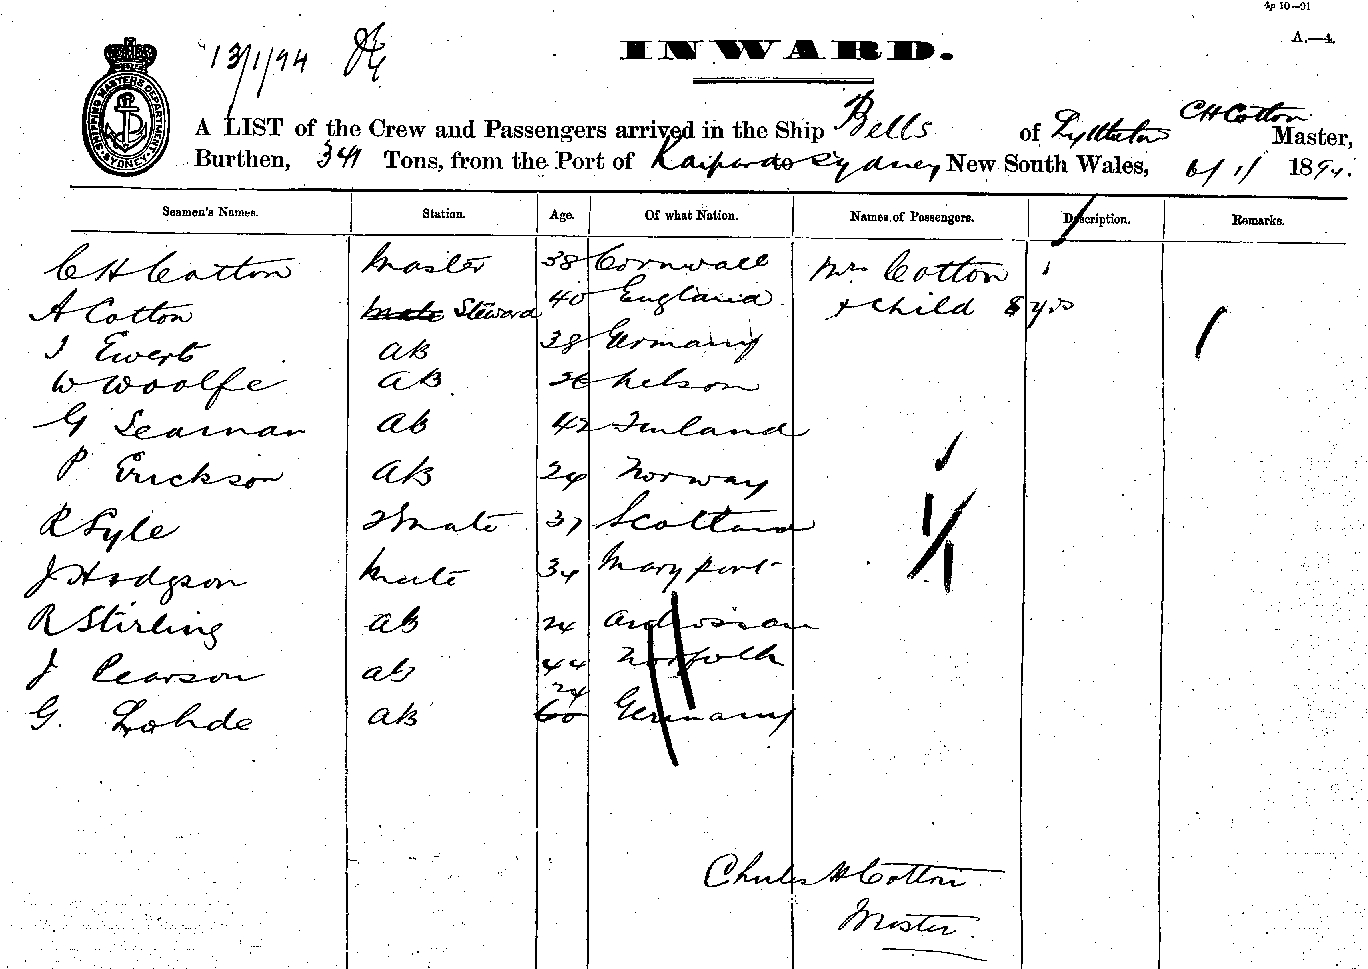 4p 10—91
A.—4.
13/1/94
INWARD.
SHIPPING MASTERS DEPARTMENT SYDNEY
A LIST of the Crew and Passengers arrived in the Ship Bells of Lyttleton CH Cotton Master,
Burthen, 341 Tons, from the Port of Kaipara to Sydney New South Wales, 6/1/ 1894.
Seamen's Names. Station. Age. Of what Nation. Names of Passengers. Description. Remarks.
C H Cotton Master 38 Cornwall Mrs Cotton
A Cotton Mate Steward 40 England + child 8 yrs
J Ewert AB 38 Germany
W Woolfe AB 26 Nelson
G Seaman AB 42 Finland
P Erickson AB 24 Norway
R Lyle 2 Mate 37 Scotland
J Hodgson Mate 34 Maryport
R Stirling AB 24 Ardrossan
J Pearson AB 44 Norfolk
G. Lohde AB 60 24 Germany
Charles H Cotton
Master.